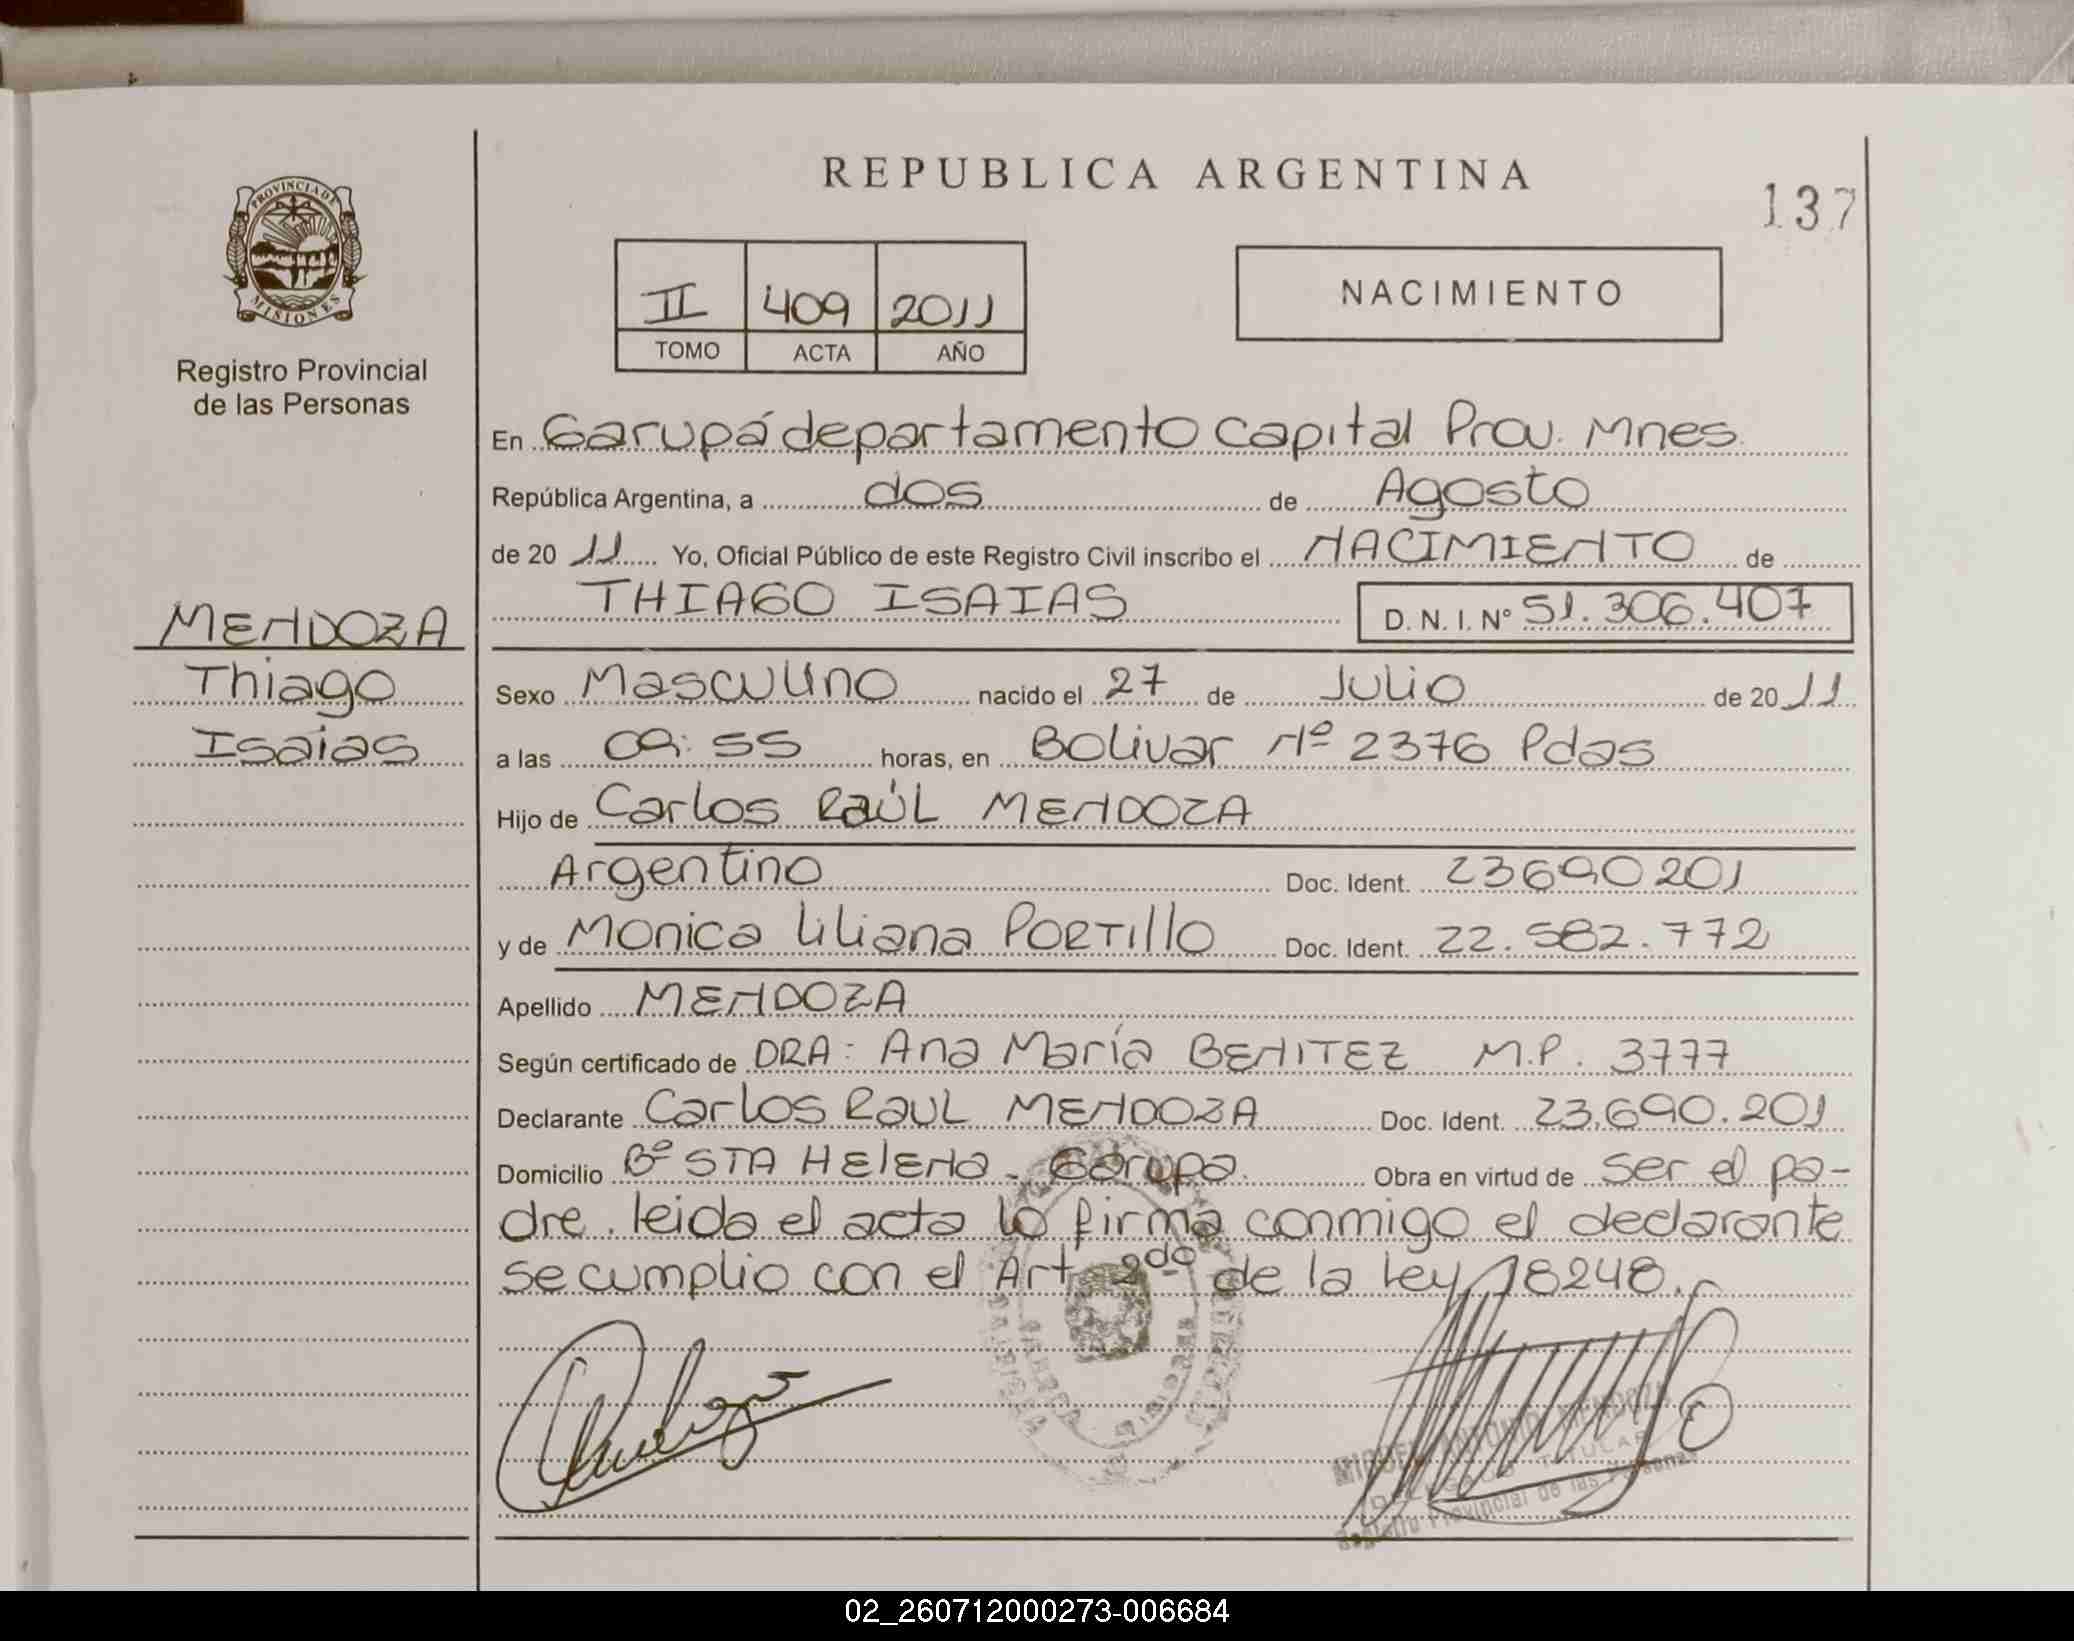 REPUBLICA ARGENTINA
137
PROVINCIA DE
MISIONES
Registro Provincial
de las Personas
II 409 2011
TOMO ACTA AÑO
NACIMIENTO
En Garupá departamento Capital Prov. Mnes.
República Argentina, a dos de Agosto
de 20 11 Yo, Oficial Público de este Registro Civil inscribo el NACIMIENTO de
THIAGO ISAIAS D. N. I. Nº 51.306.407
MENDOZA
Thiago
Isaias
Sexo Masculino nacido el 27 de Julio de 20 11
a las 09:55 horas, en Bolivar Nº 2376 Pdas
Hijo de Carlos Raúl MENDOZA
Argentino Doc. Ident. 23690201
y de Monica Liliana PORTIllO Doc. Ident. 22.582.772
Apellido MENDOZA
Según certificado de DRA: Ana María BENITEZ M.P. 3777
Declarante Carlos Raul MENDOZA Doc. Ident. 23.690.201
Domicilio Bº STA HElENA - Garupa. Obra en virtud de ser el pa-
dre. leida el acta lo firma conmigo el declarante
se cumplio con el Art 2do de la ley 18248.
MIGUEL ANTONIO MENDOZA
DELEGADO TITULAR
Registro Provincial de las Personas
02_260712000273-006684